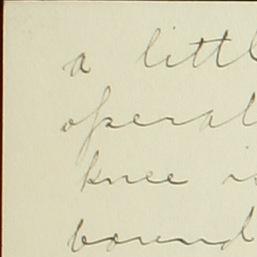 a littl
operat
knee is
bound